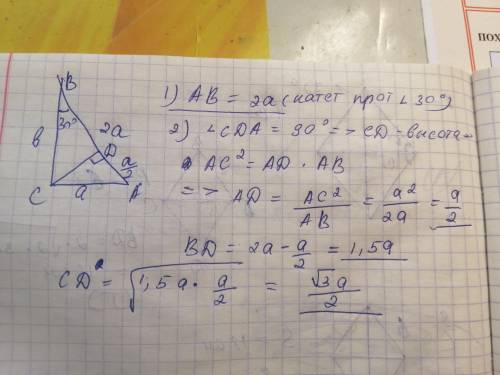 ПОХ
B
30°
в
2a
D
a/2
C
a
A
1) AB = 2a (катет прот ∠ 30°)
2) ∠CDA = 90° => CD - высота -
AC² = AD · AB
=> AD = AC²/AB = a²/2a = a/2
BD = 2a - a/2 = 1,5a
CD = √(1,5a · a/2) = √3a/2